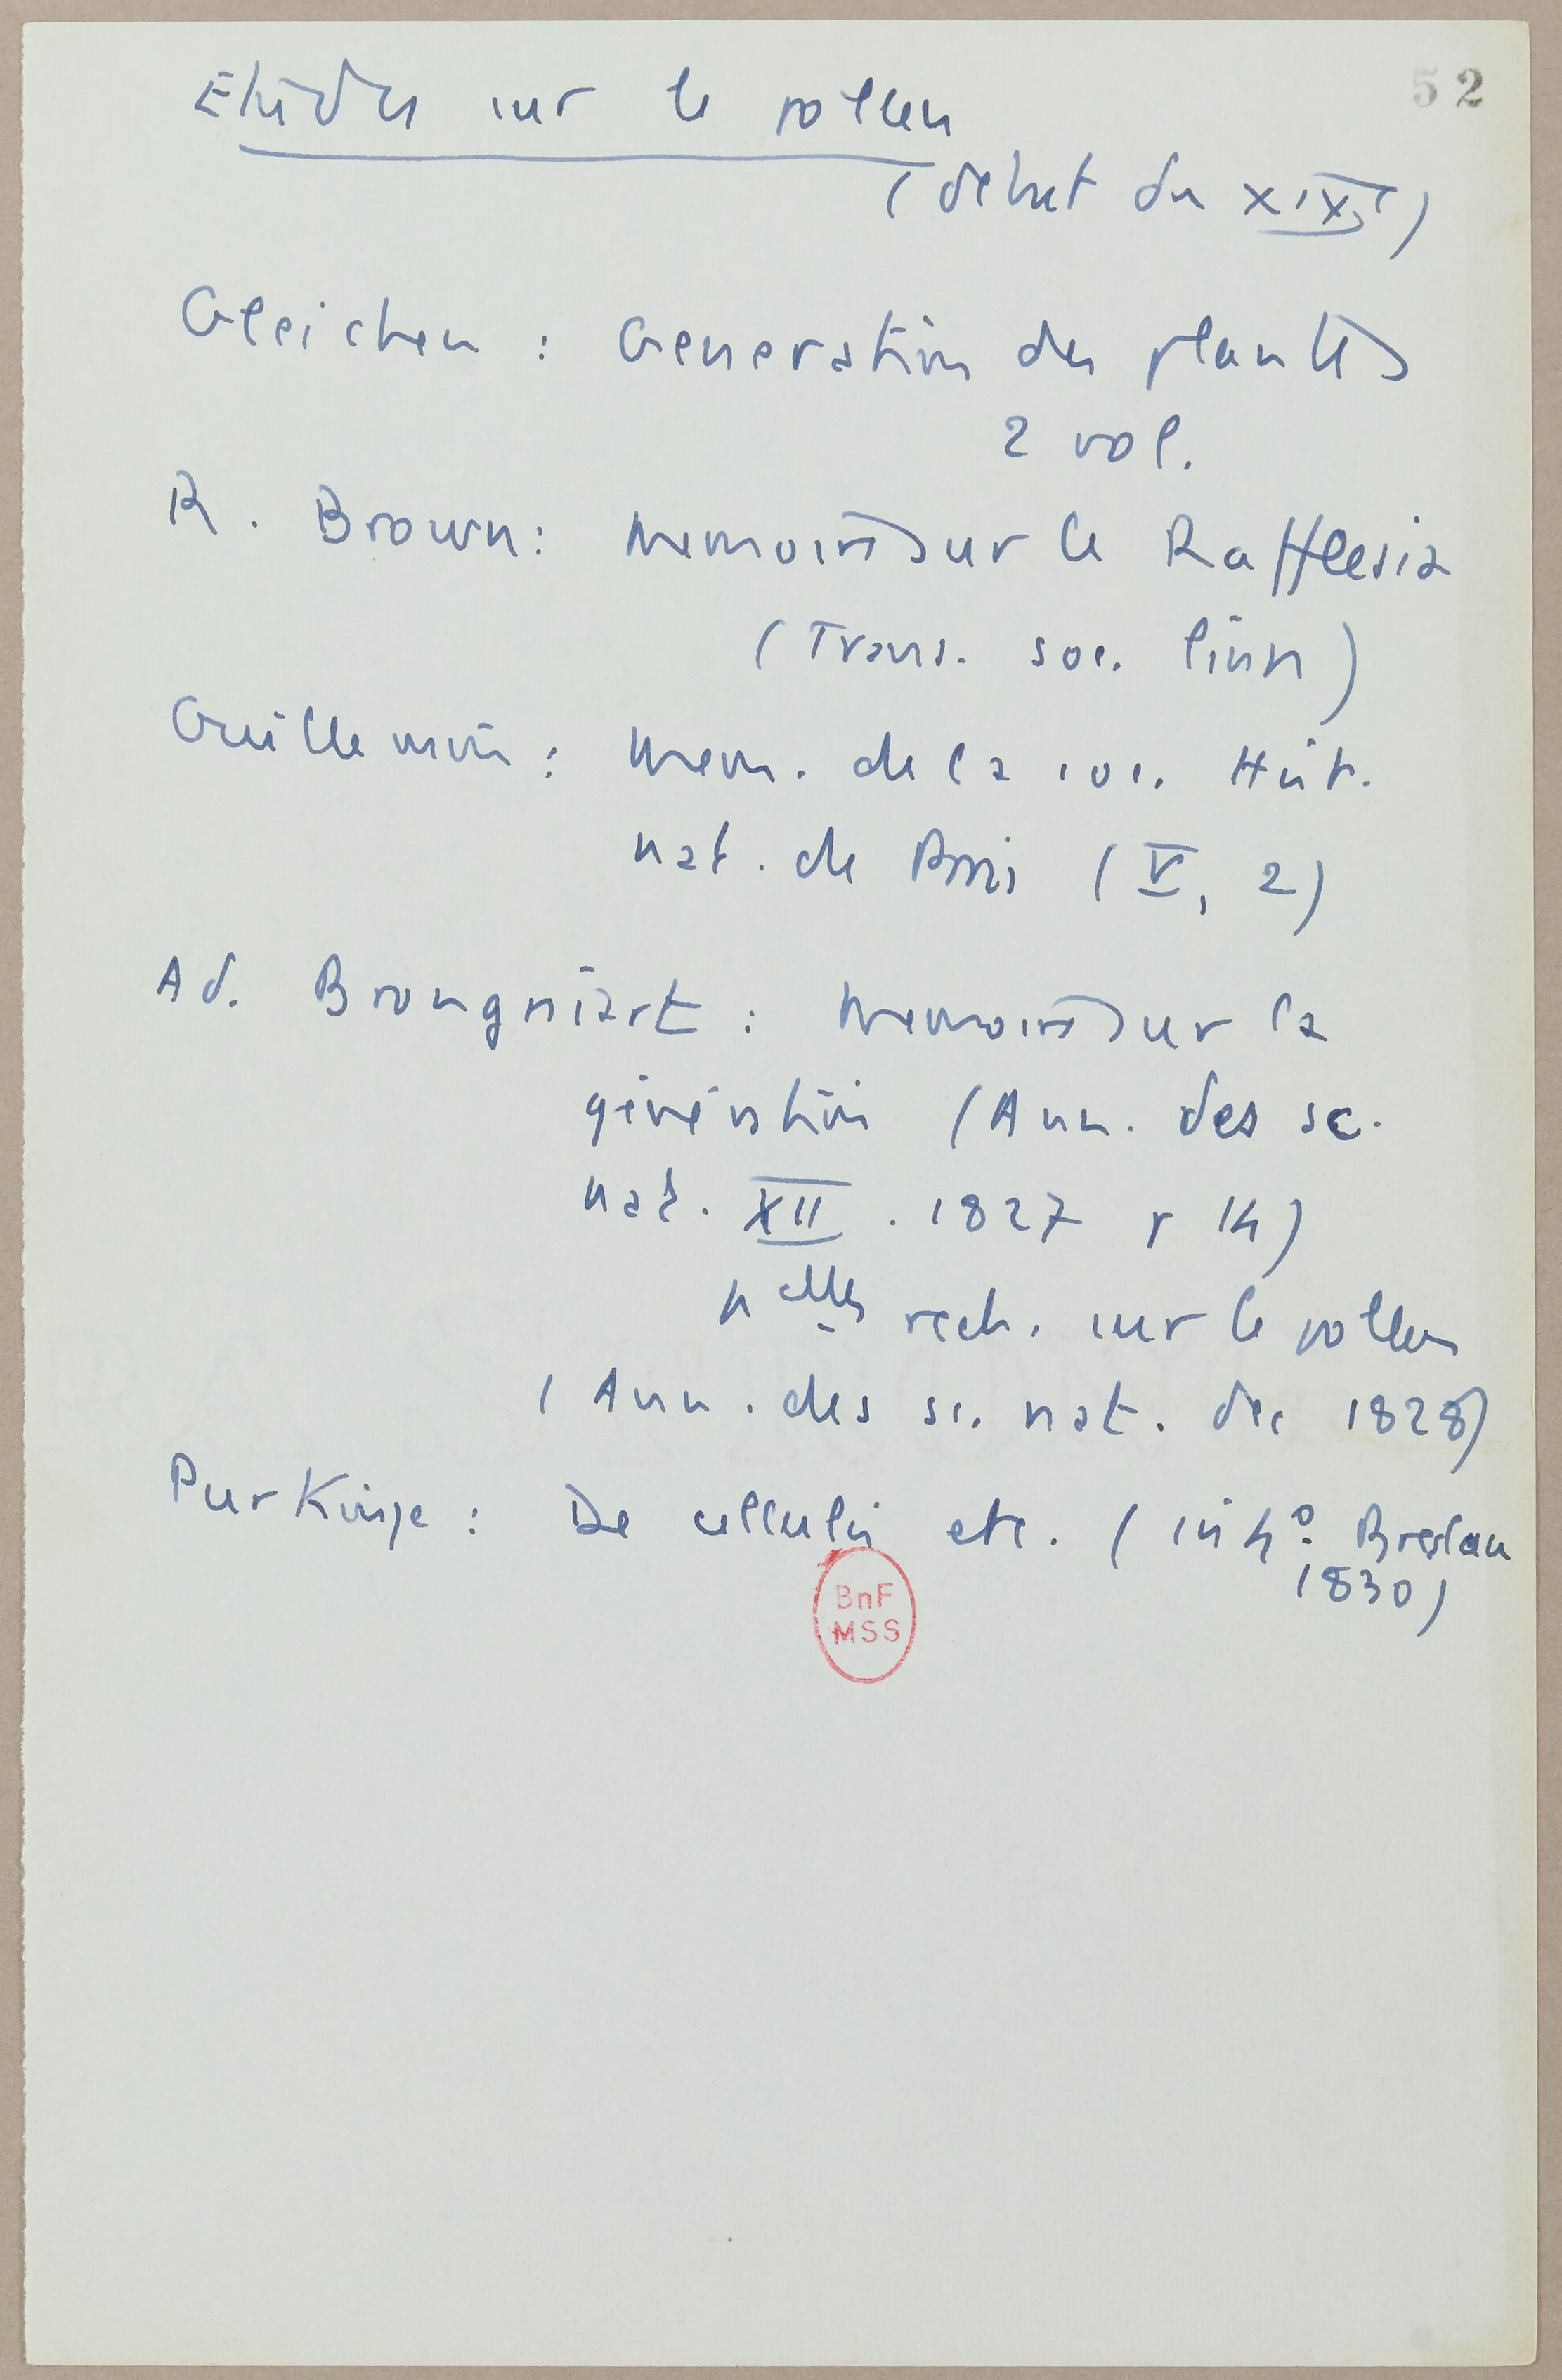 52
Etudes sur le pollen
(debut du XIXe)
Gleichen : Generation des plantes
2 vol.
R. Brown : Memoire sur le Rafflesia
(Trans. soc. linn)
Guillemin : Mem. de la soc. Hist.
nat. de Paris (V, 2)
Ad. Brongniart : Memoire sur la
génération (Ann. des sc.
nat. XII . 1827 p 14)
nelles rech. sur le pollen
(Ann. des sc. nat. dec 1828)
Purkinje : De cellulis etc. (in 4º. Breslau
1830)
BnF
MSS